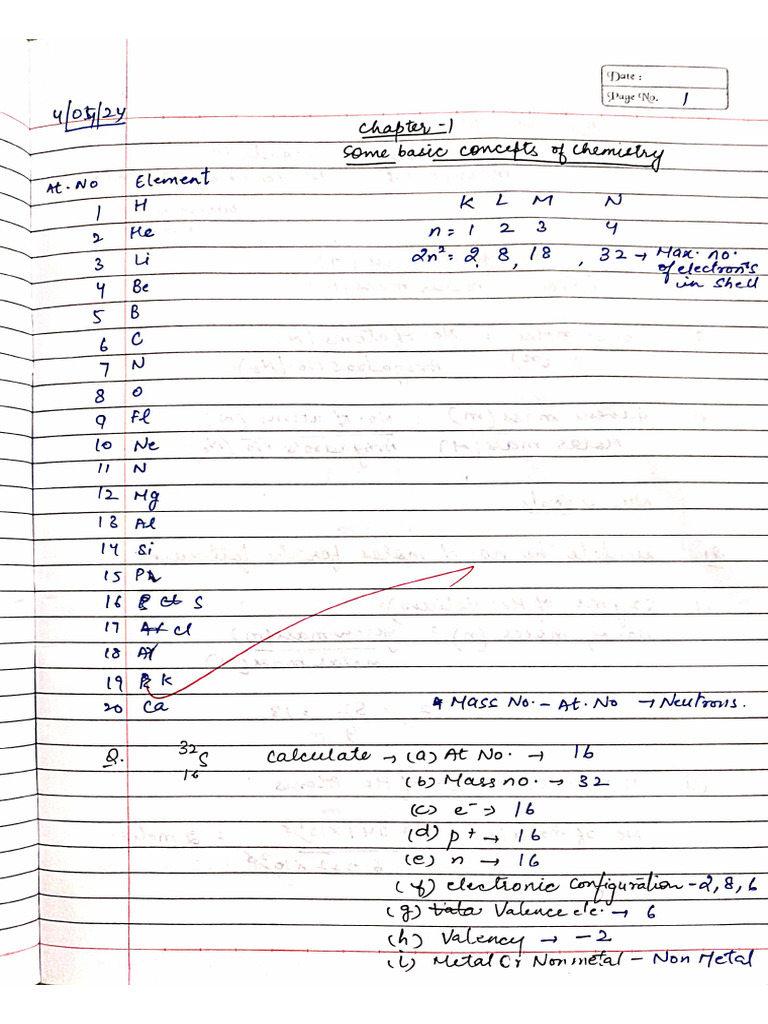 Date :
Page No. 1
4/05/24
Chapter-1
Some basic concepts of Chemistry
At. No Element
1 H K L M N
2 He n = 1 2 3 4
3 Li 2n² = 2, 8, 18, 32 → Max. no. of electrons in shell
4 Be
5 B
6 C
7 N
8 O
9 Fl
10 Ne
11 N
12 Mg
13 Al
14 Si
15 P
16 S
17 Cl
18 Ar
19 K
20 Ca * Mass No. - At. No → Neutrons.
Q. ³²₁₆S Calculate → (a) At No. → 16
(b) Mass no. → 32
(c) e⁻ → 16
(d) p⁺ → 16
(e) n → 16
(f) electronic configuration - 2, 8, 6
(g) Valence ele. → 6
(h) Valency → -2
(i) Metal Or Nonmetal - Non Metal